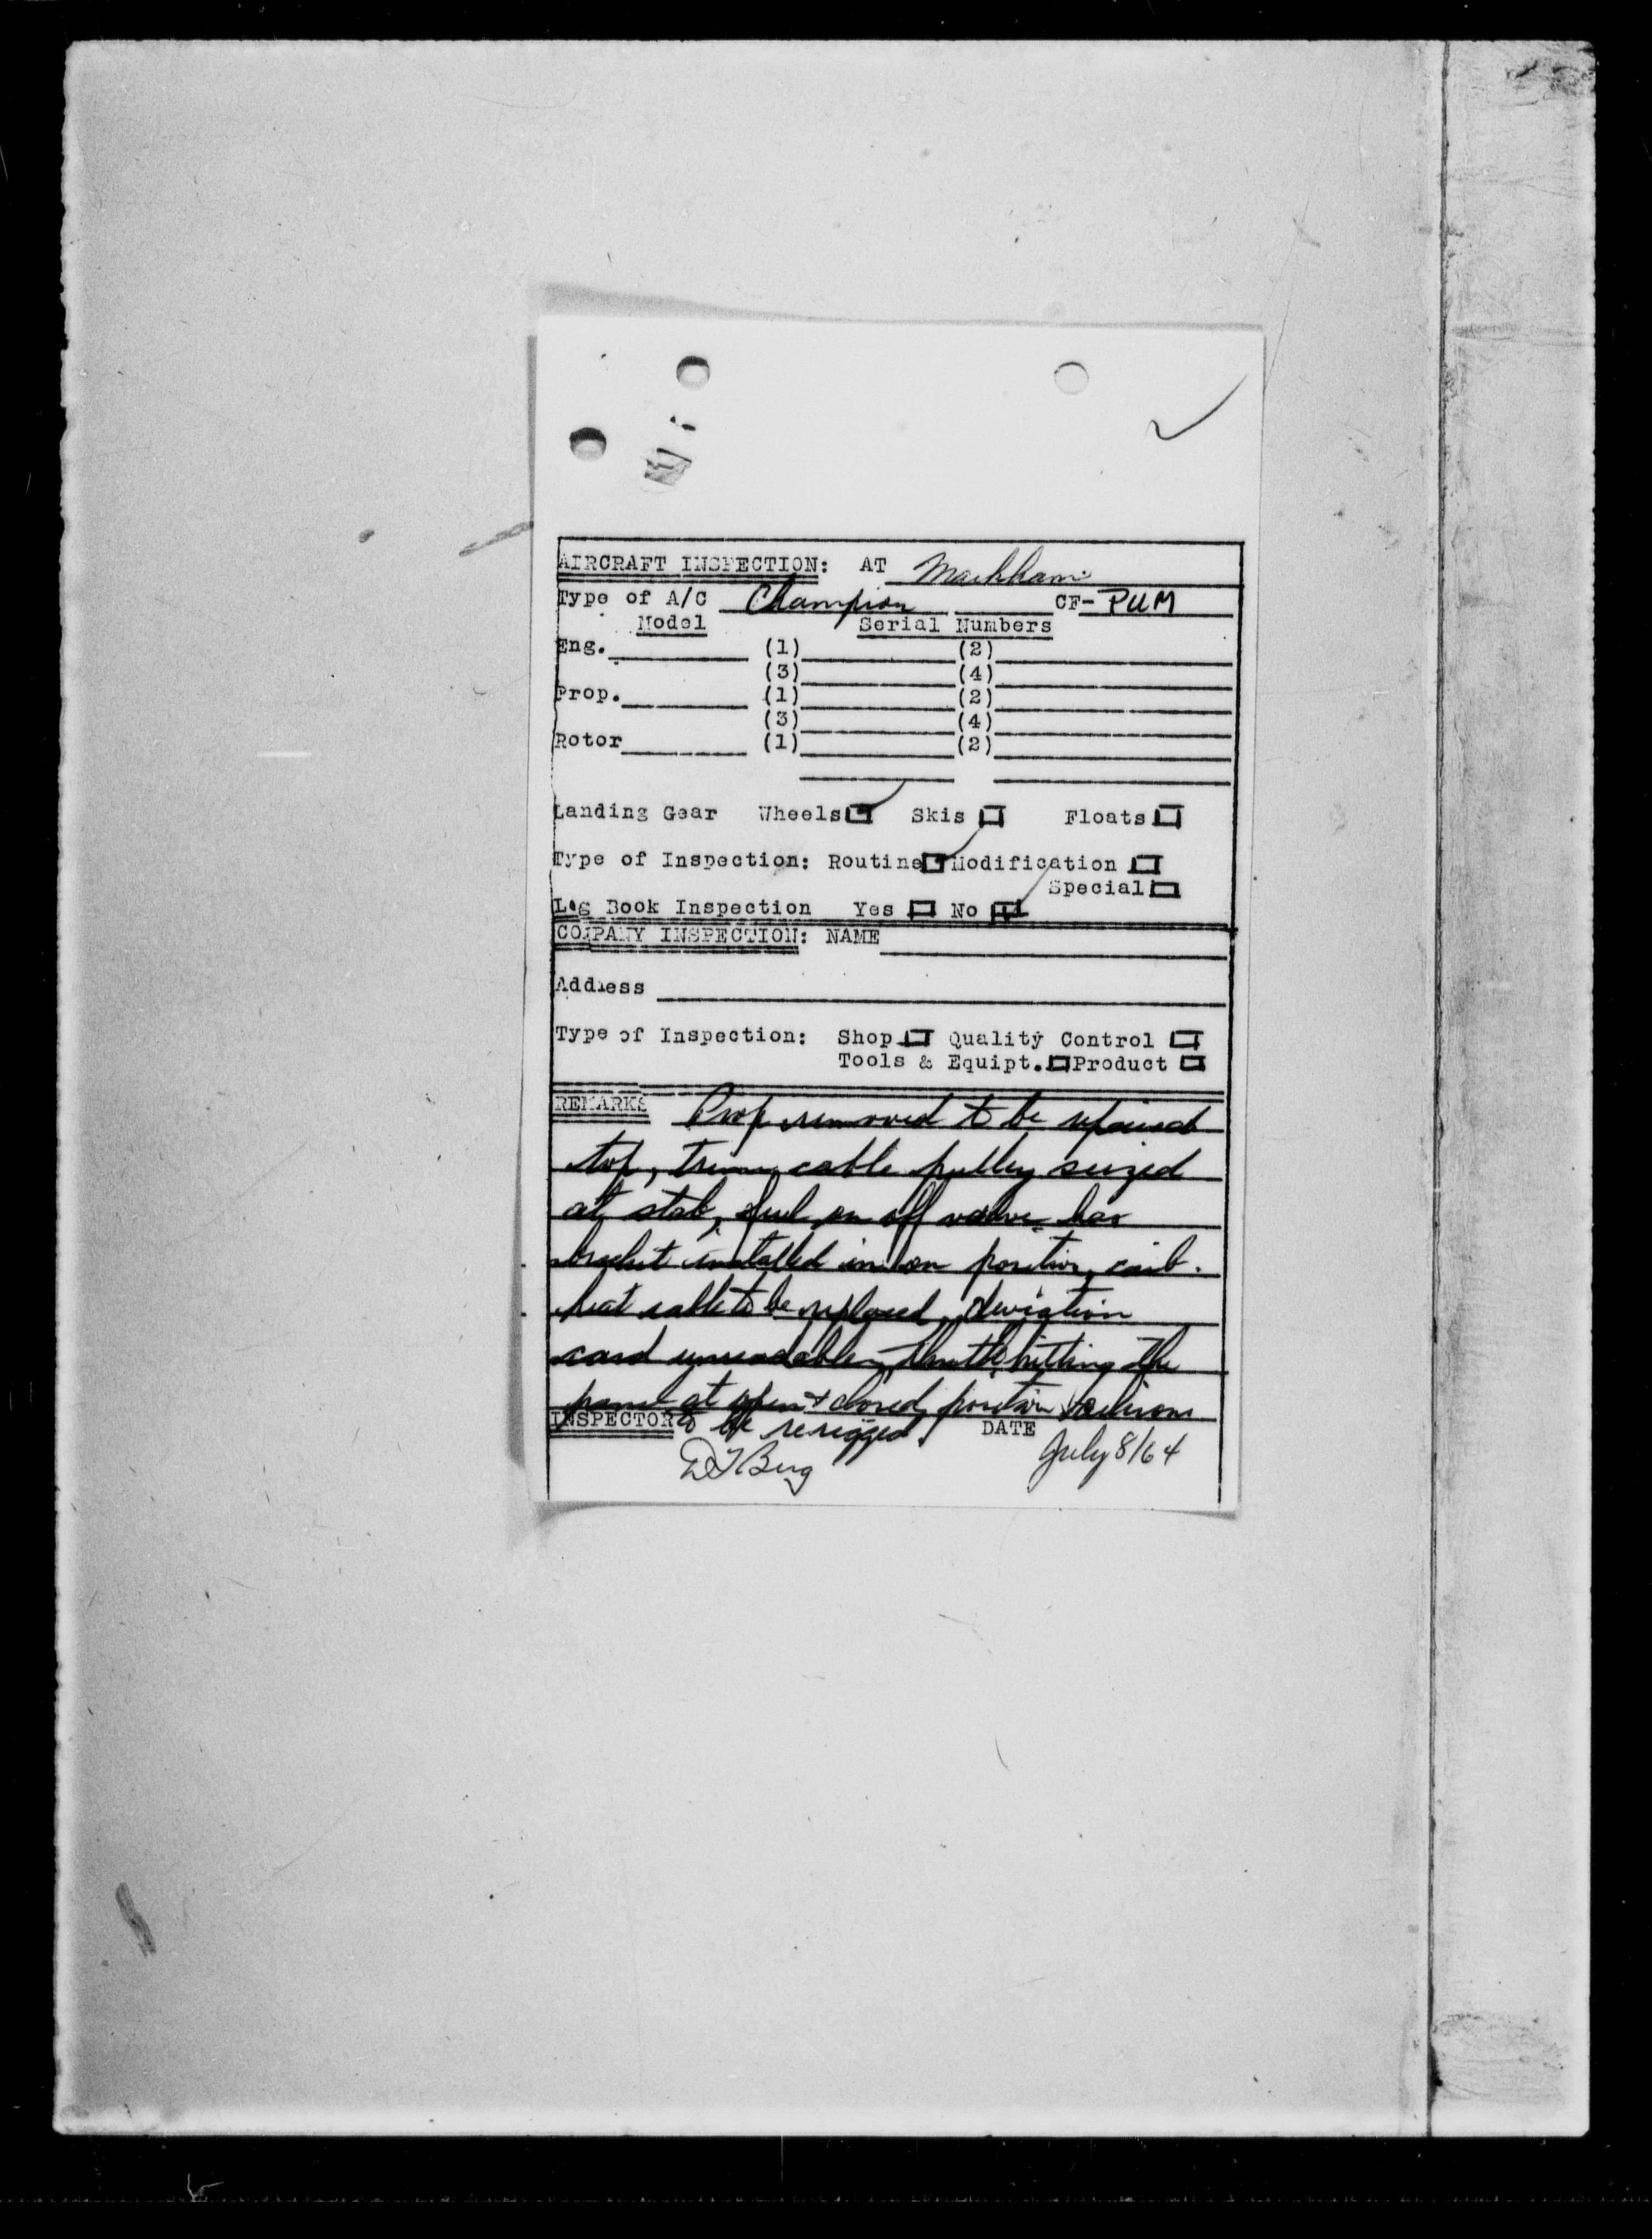 AIRCRAFT INSPECTION: AT Markham
Type of A/C Champion CF-PUM
Model Serial Numbers
Eng. (1) (2)
(3) (4)
Prop. (1) (2)
(3) (4)
Rotor (1) (2)
Landing Gear Wheels Skis Floats
Type of Inspection: Routine Modification
Special
Log Book Inspection Yes No
COMPANY INSPECTION: NAME
Address
Type of Inspection: Shop Quality Control
Tools & Equipt. Product
REMARKS Prop removed to be repaired
, trim cable pulley seized
at stab, fuel on off valve has
bracket installed in on position, carb.
heat cable to be replaced, deviation
card unreadable, throttle hitting the
panel at open + closed position, ailerons
to be rerigged.
INSPECTOR DATE
D J Berg July 8/64